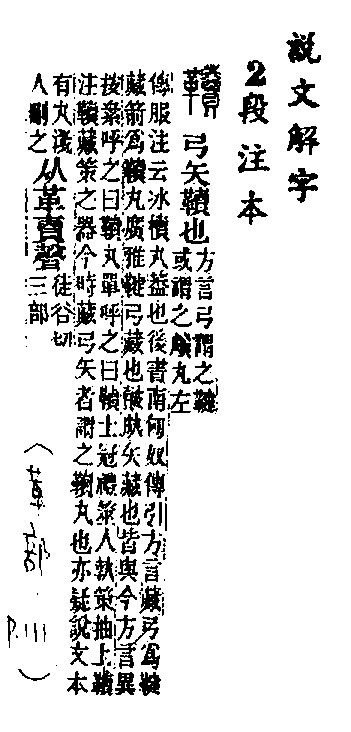 說文解字
2段注本
韇 弓矢韇也 方言弓謂之鞬
或謂之丸左
傳服注云冰櫝丸葢也後書南匈奴傳引方言藏弓爲鞬
藏箭爲韇丸廣雅鞬弓藏也矢藏也皆與今方言異
按絫呼之曰韇丸單呼之曰韇士冠禮筮人執策抽上韇
注韇藏策之器今時藏弓矢者謂之韇丸也亦疑說文本
有丸淺
人刪之
从革𧶠聲
徒谷切
三部
(革部．P.111)